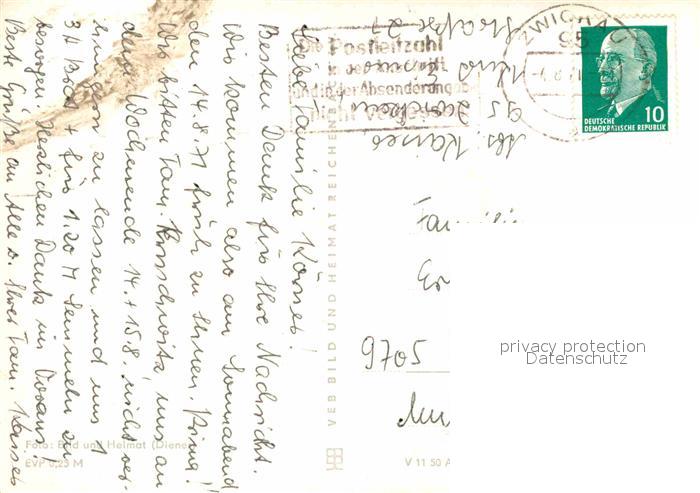 Liebe Familie Körner!
Besten Dank für Ihre Nachricht.
Wir kommen also am Sonnabend
den 14.8.71 früh zu Ihnen. Prima!
Wir bitten Fam. uns an
dem Wochenende 14. + 15.8. nicht ver-
hungern zu lassen und uns 1
3 Brot + für 1.20 M Semmeln zu
besorgen. Herzlichen Dank im Voraus!
Beste Grüße an Alle v. Ihrer Fam. Kaiser
Abs. Kaiser
95 Zwickau
Straße 27
Die Postleitzahl
in der Anschrift
und in der Absenderangabe
nicht vergessen
ZWICKAU
95
10
DEUTSCHE
DEMOKRATISCHE REPUBLIK
Familie
9705
privacy protection
Datenschutz
VEB BILD UND HEIMAT REICHENBA
Foto: Bild und Heimat (Diene
EVP 0,25 M
V 11 50 A